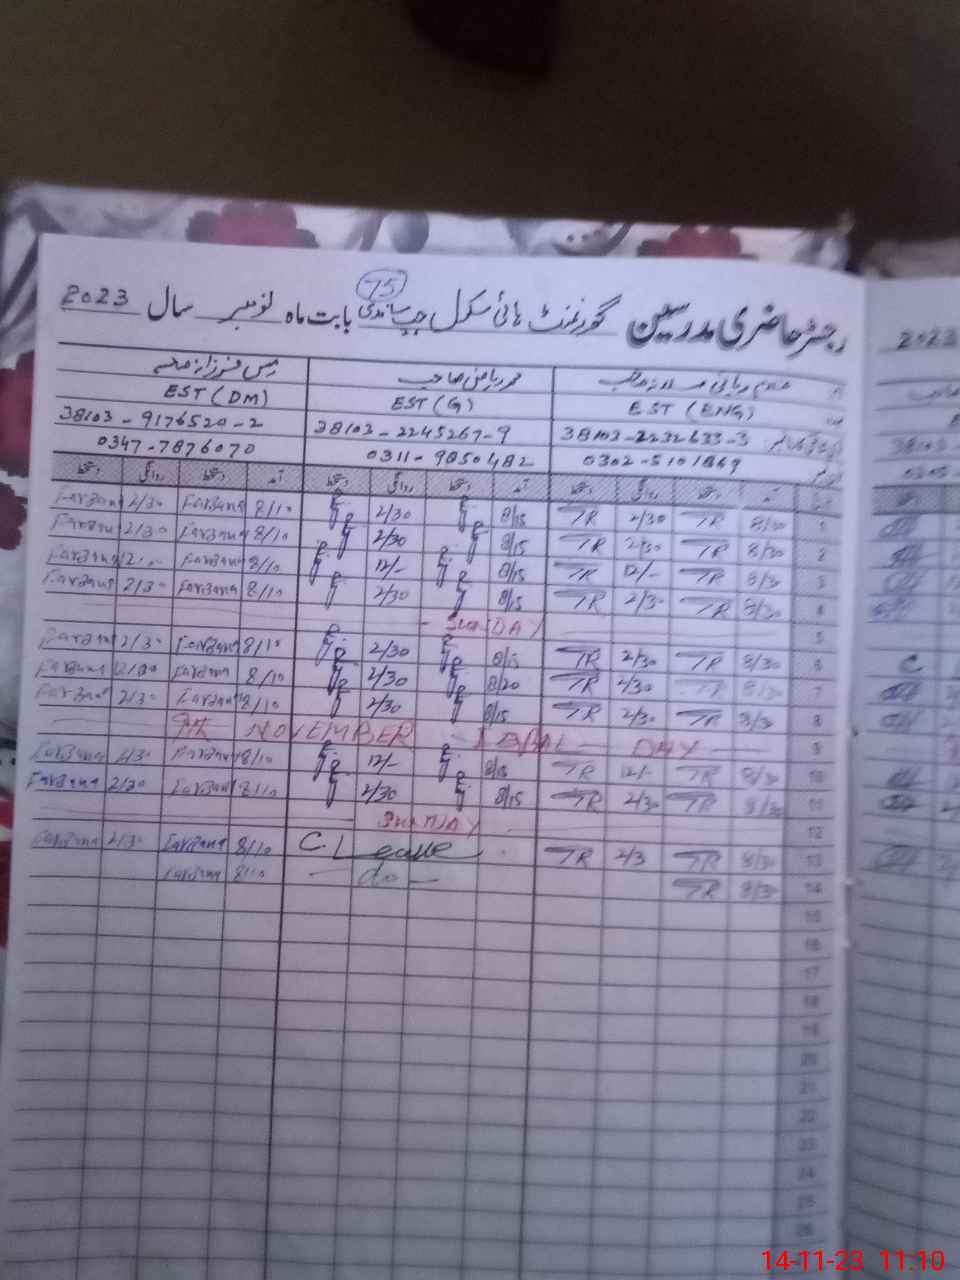 75
رجسٹر حاضری مدرسین گورنمنٹ ہائی سکول بابت ماہ نومبر سال 2023
2023
مس فرزانہ
محمد ریاض صاحب
EST (DM)
EST (G)
EST (ENG)
38103-9176520-2
38103-2245267-9
38103-2232633-3
0347-7876070
0311-9850482
0302-5101869
دستخط روانگی دستخط آمد دستخط روانگی دستخط آمد دستخط روانگی دستخط آمد
Farzana 2/30 Farzana 8/10 2/30 8/15 TR 2/30 TR 8/30 1
Farzana 2/30 Farzana 8/10 2/30 8/15 TR 2/30 TR 8/30 2
Farzana 12/- Farzana 8/10 12/- 8/15 TR 12/- TR 8/30 3
Farzana 2/30 Farzana 8/10 2/30 8/15 TR 2/30 TR 8/30 4
- SUNDAY 5
Farzana 2/30 Farzana 8/10 2/30 8/15 TR 2/30 TR 8/30 6
Farzana 2/30 Farzana 8/10 2/30 8/20 TR 2/30 TR 8/30 7
Farzana 2/30 Farzana 8/10 2/30 8/15 TR 2/30 TR 8/30 8
9th NOVEMBER - IQBAL - DAY - 9
Farzana Farzana 8/10 12/- 8/15 TR 12/- TR 8/30 10
Farzana 2/30 Farzana 8/10 2/30 8/15 TR 2/30 TR 8/30 11
SUNDAY 12
Farzana 2/30 Farzana 8/10 C. Leave TR 2/3 TR 8/30 13
Farzana 8/10 - do - TR 8/30 14
15
16
17
18
19
20
21
22
23
24
25
26
C
14-11-23 11:10